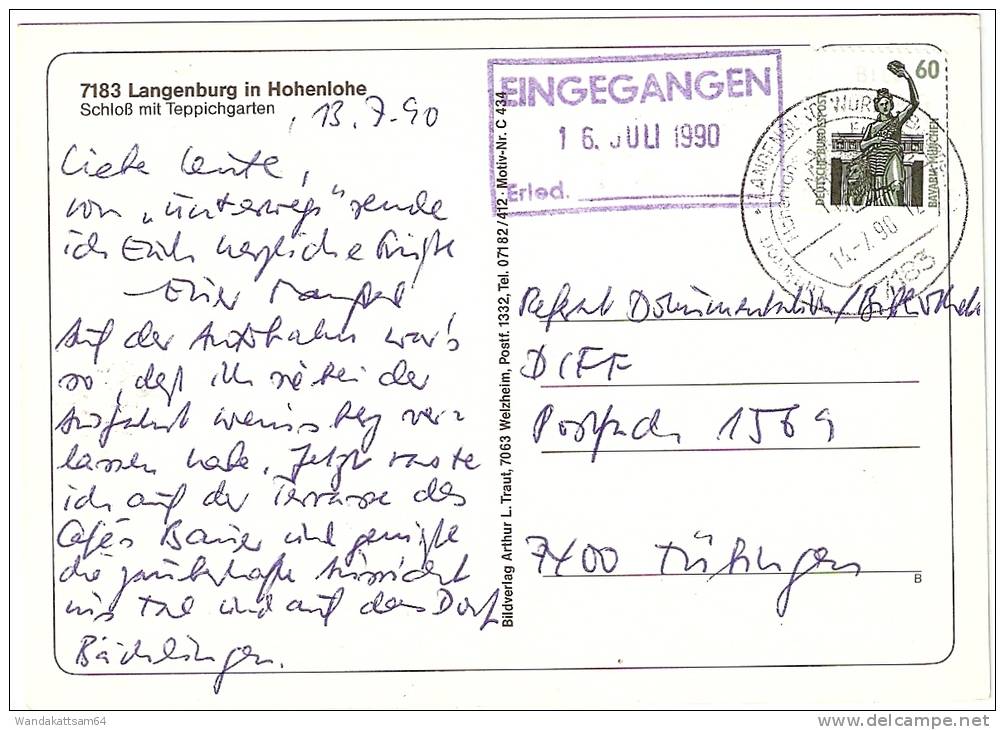 7183 Langenburg in Hohenlohe
Schloß mit Teppichgarten
13.7.90
Liebe Leute,
von „unterwegs" sende
ich Euch herzliche Grüße
Euer
Auf der Autobahn war's
so, daß ich sie bei der
Ausfahrt Weinsberg ver-
lassen habe. Jetzt raste
ich auf der Terrasse des
Cafés Bauer und genieße
die zauberhafte Aussicht
ins Tal und auf das Dorf
Bächlingen.
Bildverlag Arthur L. Traut, 7063 Welzheim, Postf. 1332, Tel. 07182/412 · Motiv-Nr. C 434
EINGEGANGEN
16. JULI 1990
Erled.
60
DEUTSCHE BUNDESPOST
BAVARIA MÜNCHEN
14.-7.90
7183
Referat Dokumentation/Bibliothek
DIFF
Postfach 1569
7400 Tübingen
B
Wandakattsam64
www.delcampe.net